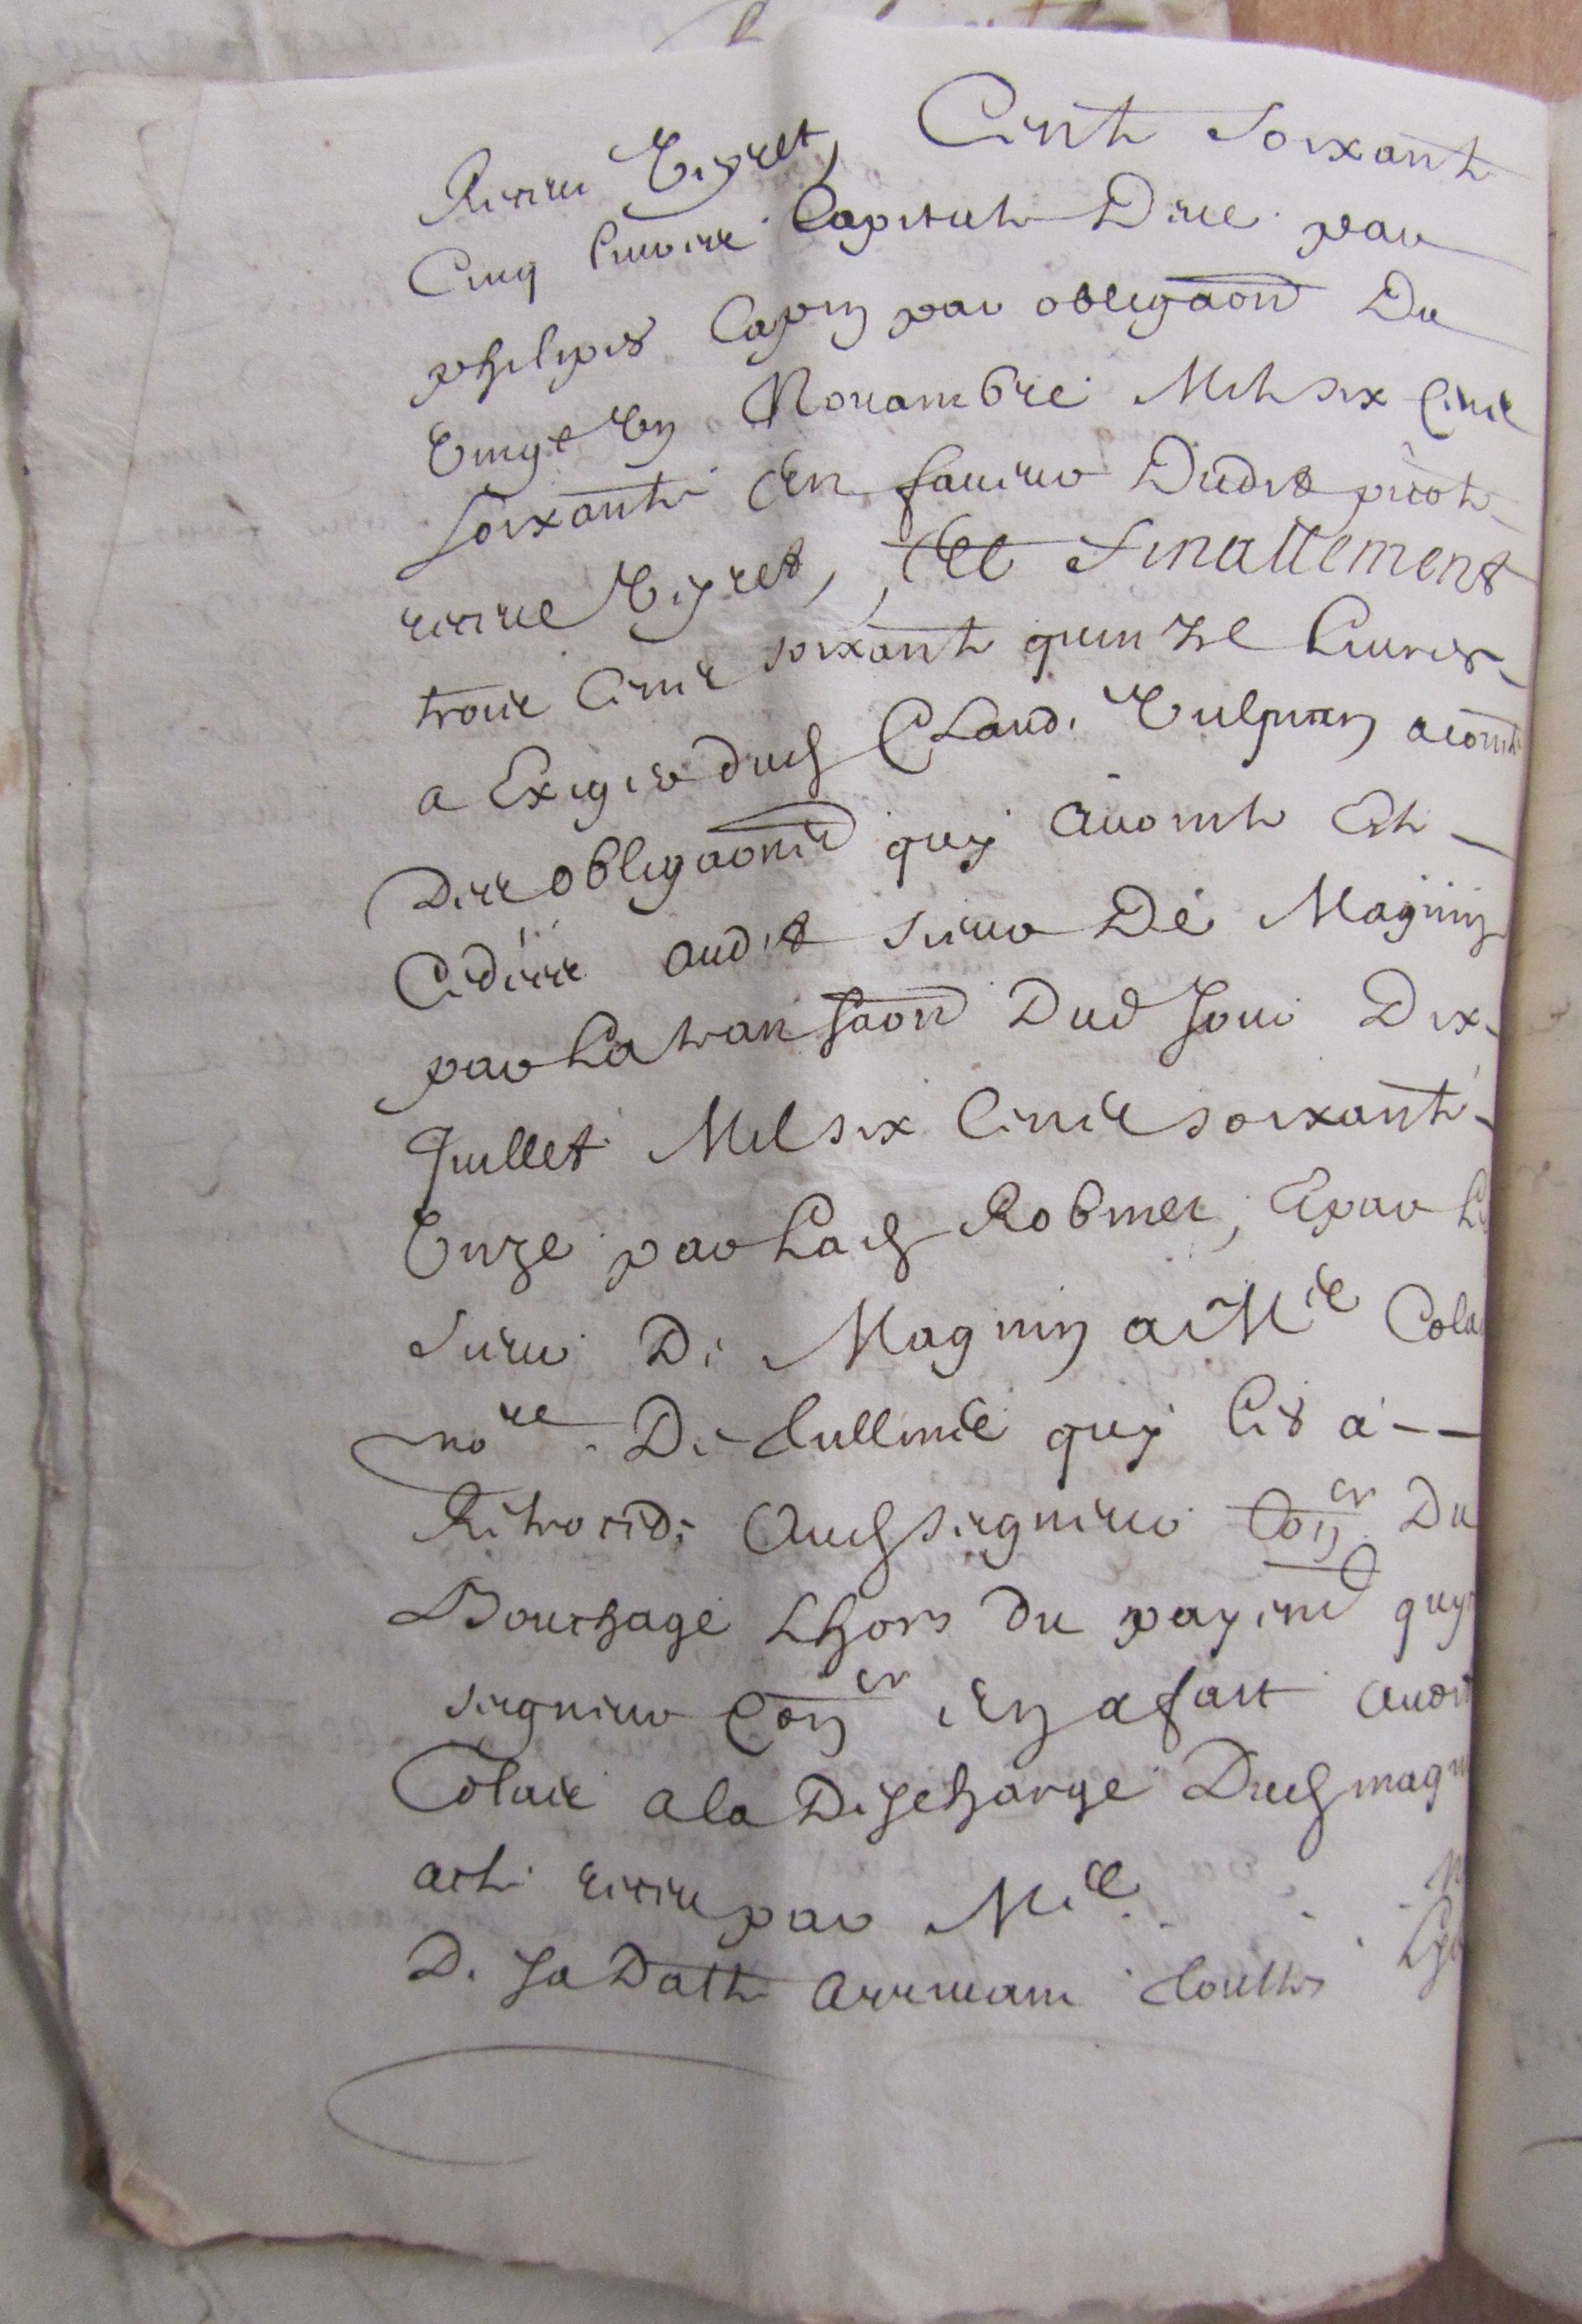 Receu Vigret, Cent soixante
Cinq livres Capitale Due par
philipes Capin par obligaōn Du
Vingt Un Novambre Mil six Cent
soixante En faveur Dudit
receue Vigret, Et finallement
trois Cent soixante quinze Livres
a Exiger dud Claude Vulpian a conte
Des obligaōns quy avoint Esté
Cedées audit sieur De Magnin
par La transaōn Dud Jour Dix
Juillet Mil six Cents soixante
Unze par Lad Robinet, Et par Le
sieur De Magnin a Me Colas
nore De Cullins quy Les a
Retrocedé Aud seigneur Coner Du
Bouchage Lhors du payemt quy
seigneur Coner En a fait audit
Colas a la Descharge Dud magnin
acte receu par Me
De sa Datte